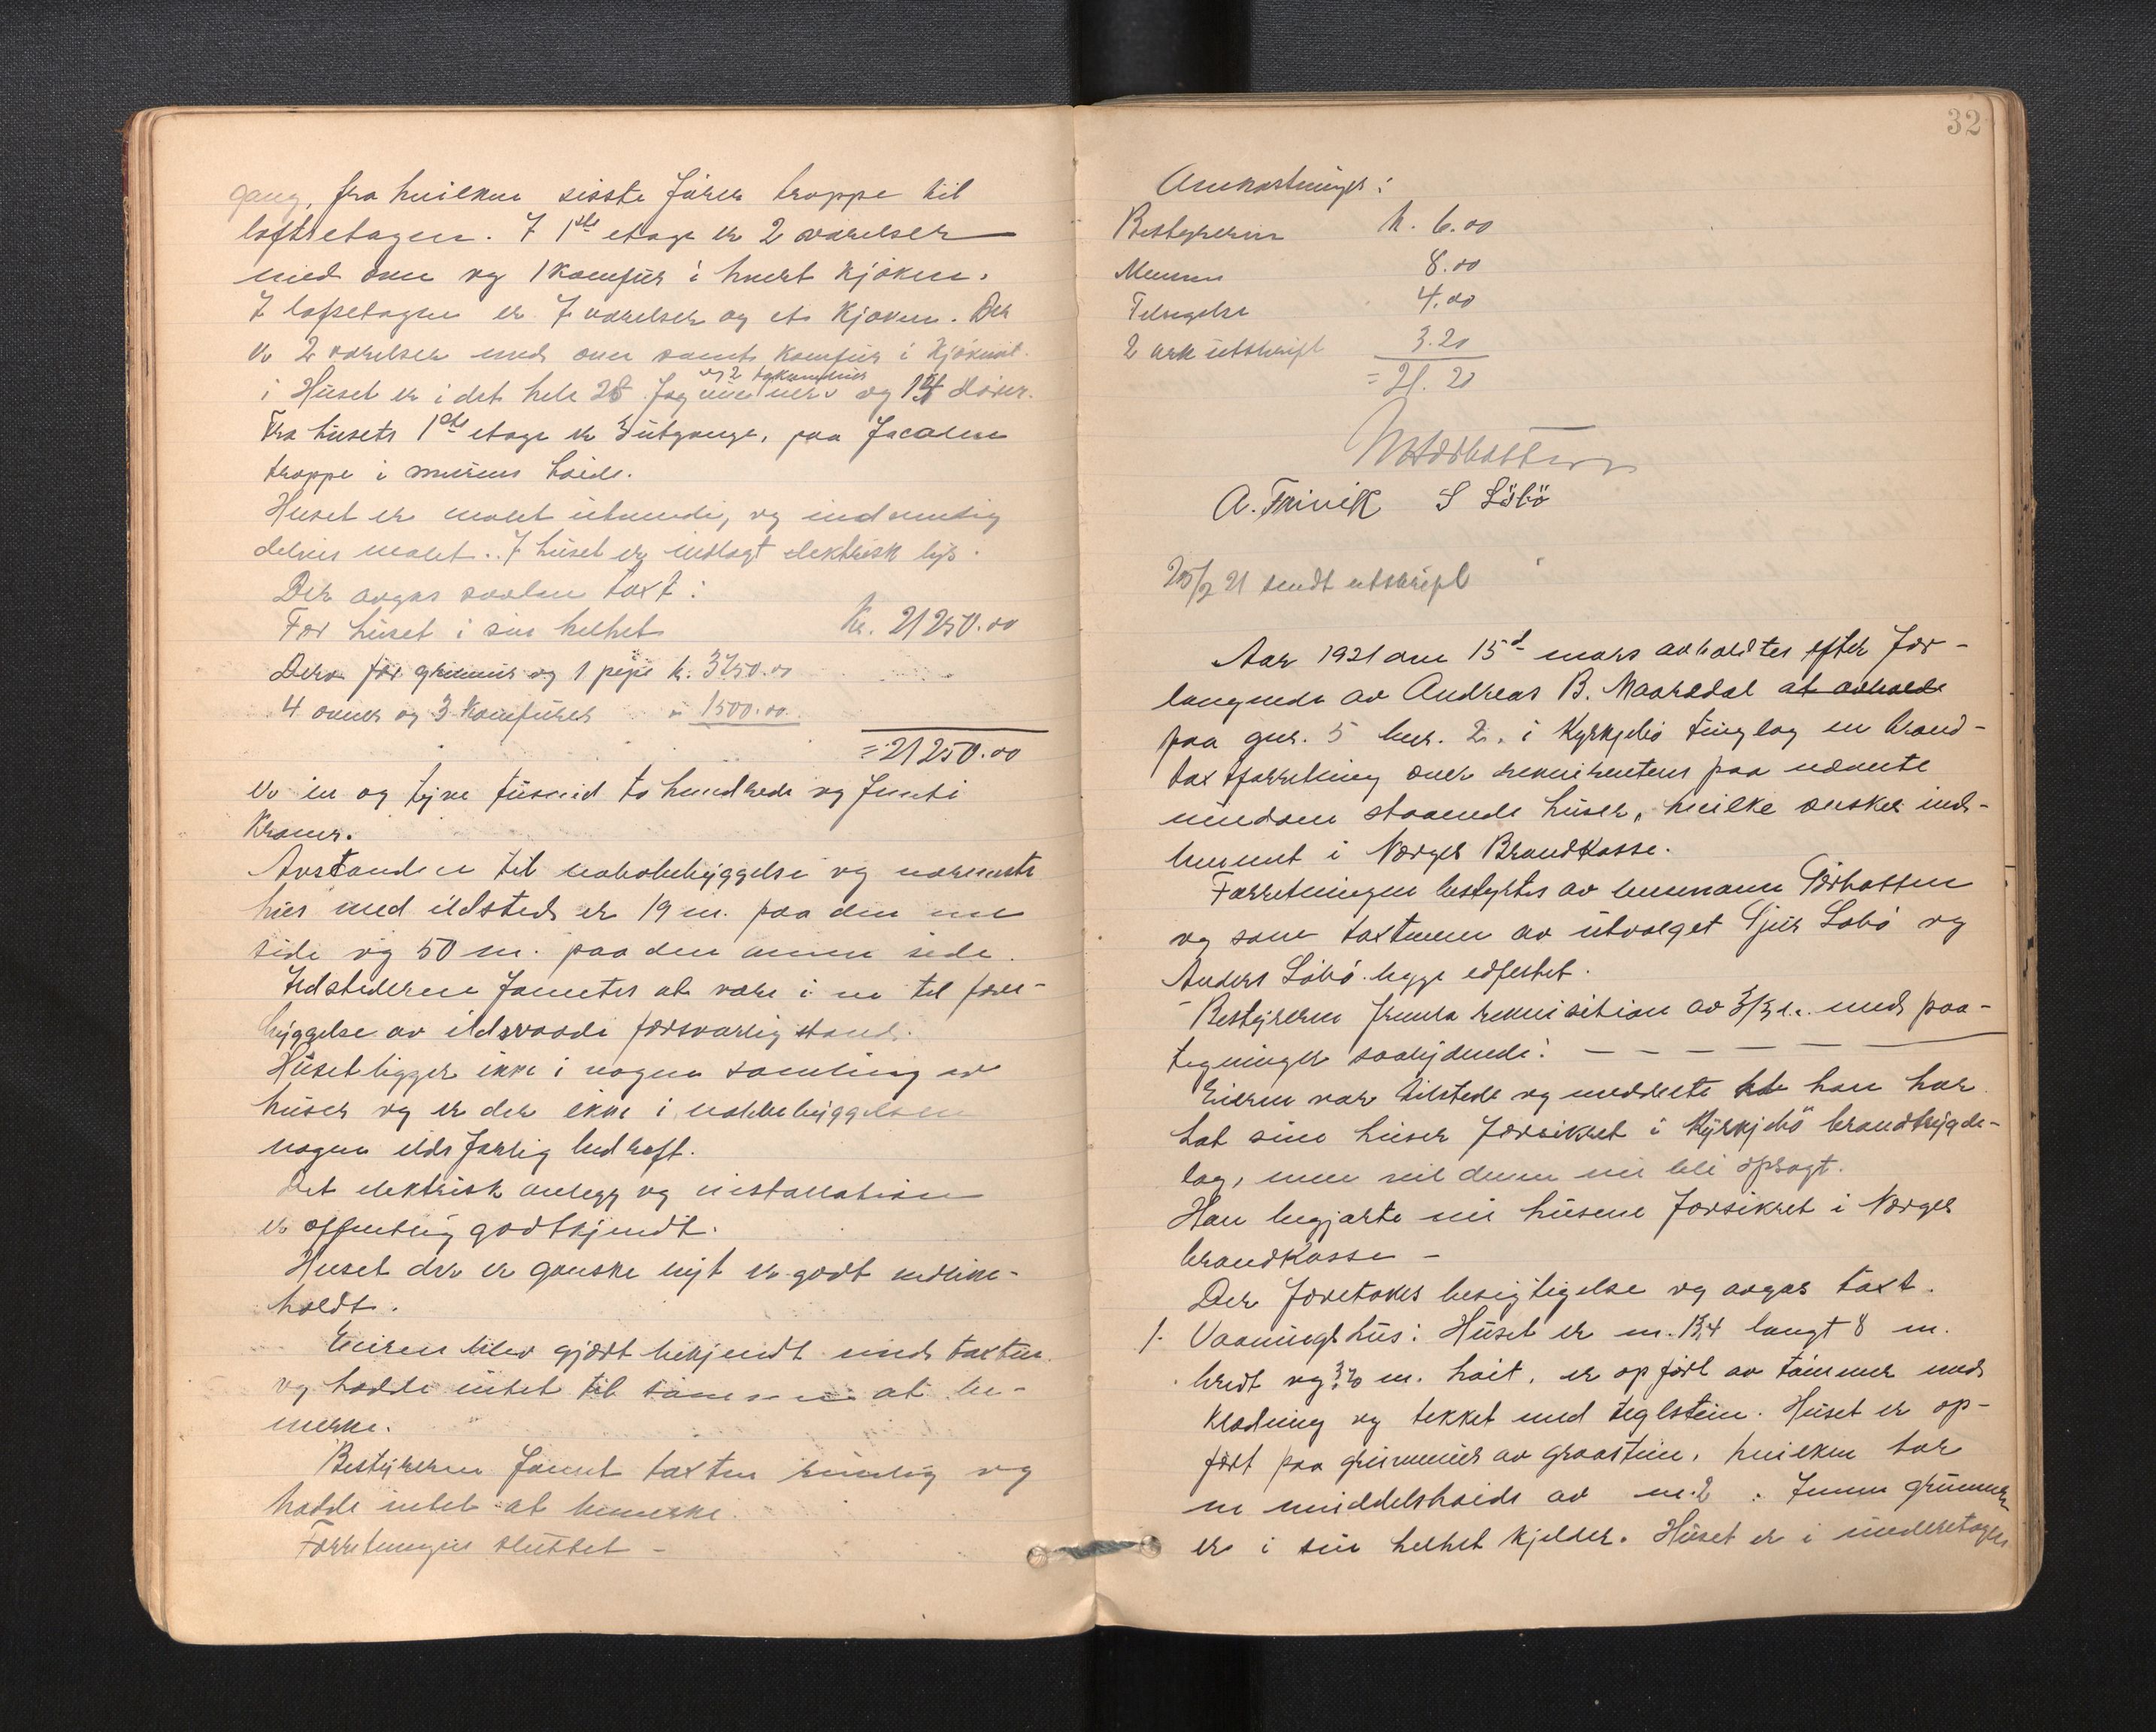 gang, fra hvilken sisste fører trappe til
loftsetagen. I 1ste etage er 2 værelser
med ovn og 1 komfur i hvert kjøken.
I loftsetagen er 7 værelser og et kjøken. Der
er 2 værelser med ovn samt komfur i kjøkenet.
i Huset er i det hele 28 fag og 14 dører.
Fra husets 1ste etage er 3 utgange, paa facaden
trappe i murens høide.
Huset er malt utvendi, og indvendig
delvis malet. I huset er indlagt elektrisk lys.
Der avgas saadan taxt:
For huset i sin helhet Kr. 21250.00
Derav for grunmur og 1 pipe k. 3750.00
4 ovner og 3 komfurer " 1500.00
= 21250.00
er en og tyve tusind to hundrede og femti
Kroner.
Avstanden til nabobebyggelse og nærmeste
hus med ildsted er 19 m. paa den ene
side og 50 m. paa den annen side.
Ildstederne fantes at være i en til fore-
byggelse av ildsvaade forsvarlig stand.
Huset ligger ikke i nogen samling av
huser og er der ikke i nabobebyggelsen
nogen ildsfarlig bedrift.
Det elektrisk anlegg og installation
er offentlig godtkjendt.
Huset der er ganske nyt er godt vedlike-
holdt.
Eieren blev gjort bekjendt med taxten
og hadde intet til samme at be-
merke.
Bestyreren fandt taxten rimelig og
hadde intet at bemerke.
Forretningen sluttet -
32
Omkostninger:
Bestyreren k. 6.00
Mennene 8.00
Tilsigelse 4.00
2 ark utskrift 3.20
= 21.20
A. Trivik S Løbø
25/2 21 sendt utskrift
Aar 1921 den 15d mars avholdtes efter for-
langende av Andreas B. Maaredal at avholde
paa gnr. 5 bnr. 2. i Kyrkjebø tinglag en brand-
taxtforretning over rekvirentens paa nævnte
eiendom staaende huser, hvilke ønskes ind-
lemmet i Norges Brandkasse.
Forretningen bestyrtes av lensmann Osbotten
og som taxtmenn av utvalget Sjur Løbø og
Anders Løbø begge edfestet.
- Bestyreren fremla rekvisition av 3/3 d.a. med paa-
tegninger saalydende: - - - - -
Eieren var tilstede og meddelte at han har
hat sine huser forsikret i Kyrkjebø brandtrygde-
lag, men vil denne nu bli opsagt.
Han begjærte nu husene forsikret i Norges
brandkasse -
Der foretokes besigtigelse og avgas taxt.
1. Vaaningshus: Huset er m. 13,4 langt 8 m.
bredt og m. høit, er opført av tømmer med
klædning og tekket med teglstein. Huset er op-
ført paa grunmur av graastein, hvilken har
en middelshøide av m. 2. Innen grunmuren
er i sin helhet kjelder. Huset er i underetagen